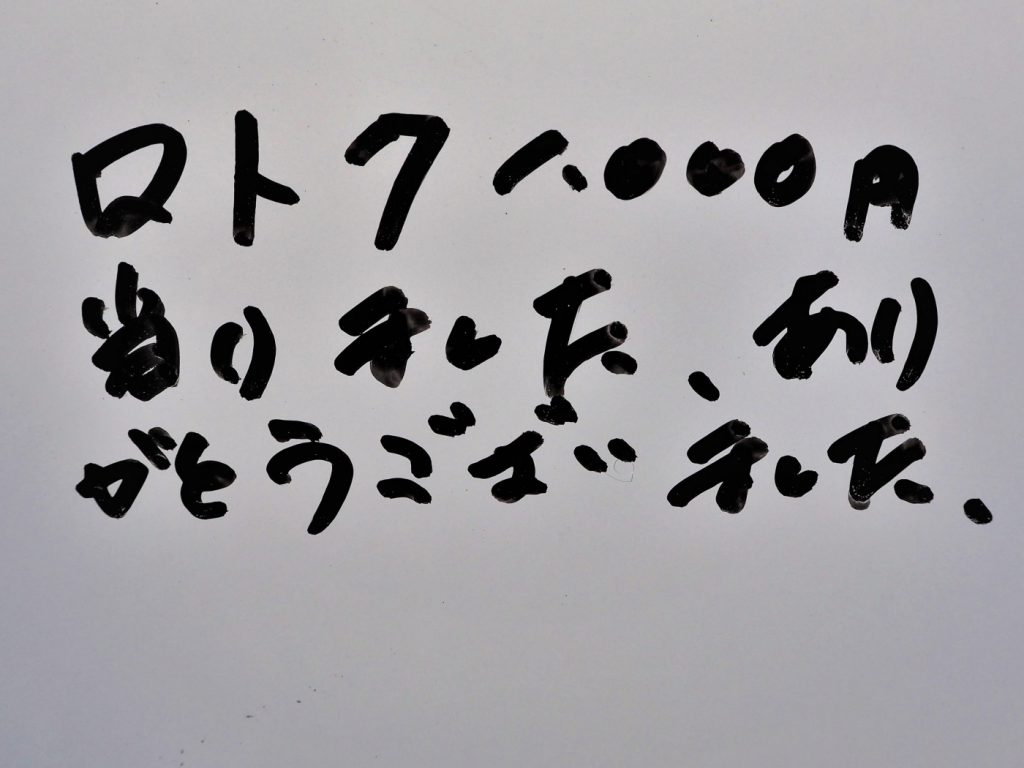 ロト7 1.000円
当りました、あり
がとうございました、